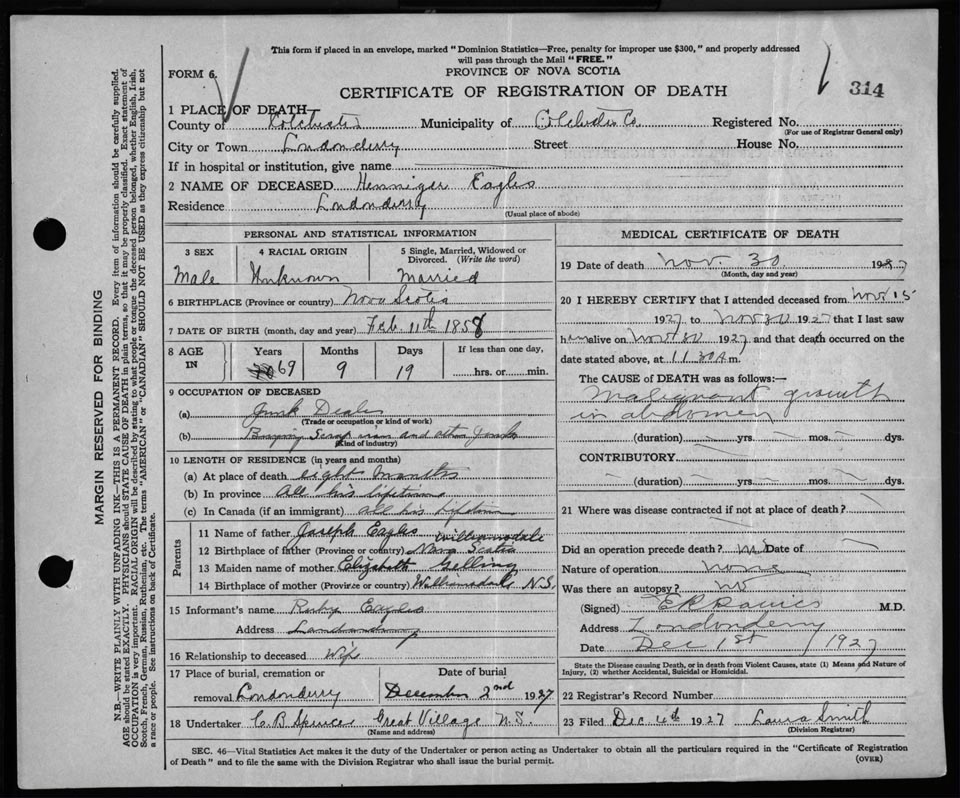 This form if placed in an envelope, marked "Dominion Statistics—Free, penalty for improper use $300," and properly addressed
will pass through the Mail "FREE."
FORM 6.
PROVINCE OF NOVA SCOTIA
314
CERTIFICATE OF REGISTRATION OF DEATH
1 PLACE OF DEATH
County of Colchester Municipality of Colchester Co. Registered No.
(For use of Registrar General only)
City or Town Londonderry Street House No.
If in hospital or institution, give name
2 NAME OF DECEASED Henniger Eagles
Residence Londonderry
(Usual place of abode)
PERSONAL AND STATISTICAL INFORMATION
3 SEX 4 RACIAL ORIGIN 5 Single, Married, Widowed or
Divorced. (Write the word)
Male Unknown Married
6 BIRTHPLACE (Province or country) Nova Scotia
7 DATE OF BIRTH (month, day and year) Feb. 11th 1858
8 AGE IN Years Months Days If less than one day,
69 9 19 hrs. or min.
9 OCCUPATION OF DECEASED
(a) Junk Dealer
(Trade or occupation or kind of work)
(b) Buying Scrap iron and other Junk
(Kind of industry)
10 LENGTH OF RESIDENCE (in years and months)
(a) At place of death eight months
(b) In province All his lifetime
(c) In Canada (if an immigrant) all his lifetime
Parents
11 Name of father Joseph Eagles
Williamsdale
12 Birthplace of father (Province or country) Nova Scotia
13 Maiden name of mother Elizabeth Gelling
14 Birthplace of mother (Province or country) Williamsdale N.S.
15 Informant's name Ruby Eagles
Address Londonderry
16 Relationship to deceased Wife
17 Place of burial, cremation or Date of burial
removal Londonderry December 2nd 1927
18 Undertaker C. B. Spencer Great Village N.S.
(Name and address)
MEDICAL CERTIFICATE OF DEATH
19 Date of death Nov. 30 1927
(Month, day and year)
20 I HEREBY CERTIFY that I attended deceased from Nov 15
1927 to Nov 30 1927 that I last saw
him alive on Nov 30 1927 and that death occurred on the
date stated above, at 11.30 A m.
The CAUSE OF DEATH was as follows:—
Malignant growth
in abdomen
(duration) yrs. mos. dys.
CONTRIBUTORY
(duration) yrs. mos. dys.
21 Where was disease contracted if not at place of death?
Did an operation precede death? no Date of
Nature of operation none
Was there an autopsy? no
(Signed) M.D.
Address Londonderry
Date Dec 1st 1927
State the Disease causing Death, or in death from Violent Causes, state (1) Means and Nature of
Injury, (2) whether Accidental, Suicidal or Homicidal.
22 Registrar's Record Number
23 Filed Dec 4th 1927 Laura Smith
(Division Registrar)
SEC. 46—Vital Statistics Act makes it the duty of the Undertaker or person acting as Undertaker to obtain all the particulars required in the "Certificate of Registration
of Death" and to file the same with the Division Registrar who shall issue the burial permit.
(OVER)
MARGIN RESERVED FOR BINDING
N.B.—WRITE PLAINLY WITH UNFADING INK—THIS IS A PERMANENT RECORD. Every item of information should be carefully supplied.
AGE should be stated EXACTLY. PHYSICIANS should STATE CAUSE OF DEATH in plain terms, so that it may be properly classified. Exact statement of
OCCUPATION is very important. RACIAL ORIGIN will be described by stating to what people or tongue the deceased person belonged, whether English, Irish,
Scotch, French, German, Russian, Ruthenian, etc. The terms "AMERICAN" or "CANADIAN" SHOULD NOT BE USED as they express citizenship but not
a race or people. See instructions on back of Certificate.